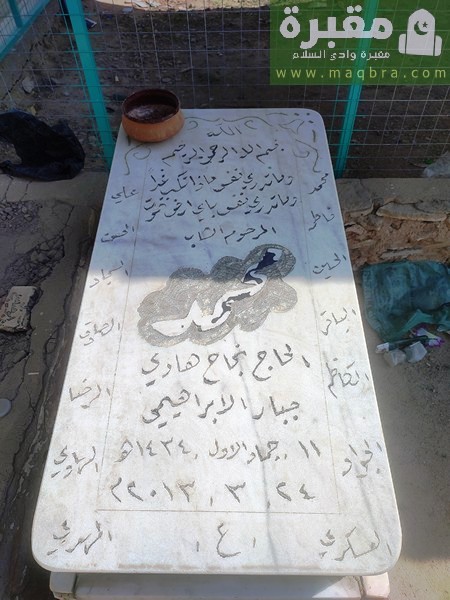 مقبرة
مقبرة وادي السلام
www.maqbra.com
الله
بسم الله الرحمن الرحيم
وما تدري نفس ماذا تكسب غدا
وما تدري نفس باي ارض تموت
المرحوم الشاب
محمد
الحاج نجاح هادي
جبار الابراهيمي
١١ . جماد الاول . ١٤٣٤هـ
٢٤ . ٣ . ٢٠١٣م
محمد
علي
فاطر
الحسن
الحسين
السجاد
الباقر
الصادق
الكاظم
الرضا
الجواد
الهادي
العسكري
ع
المهدي